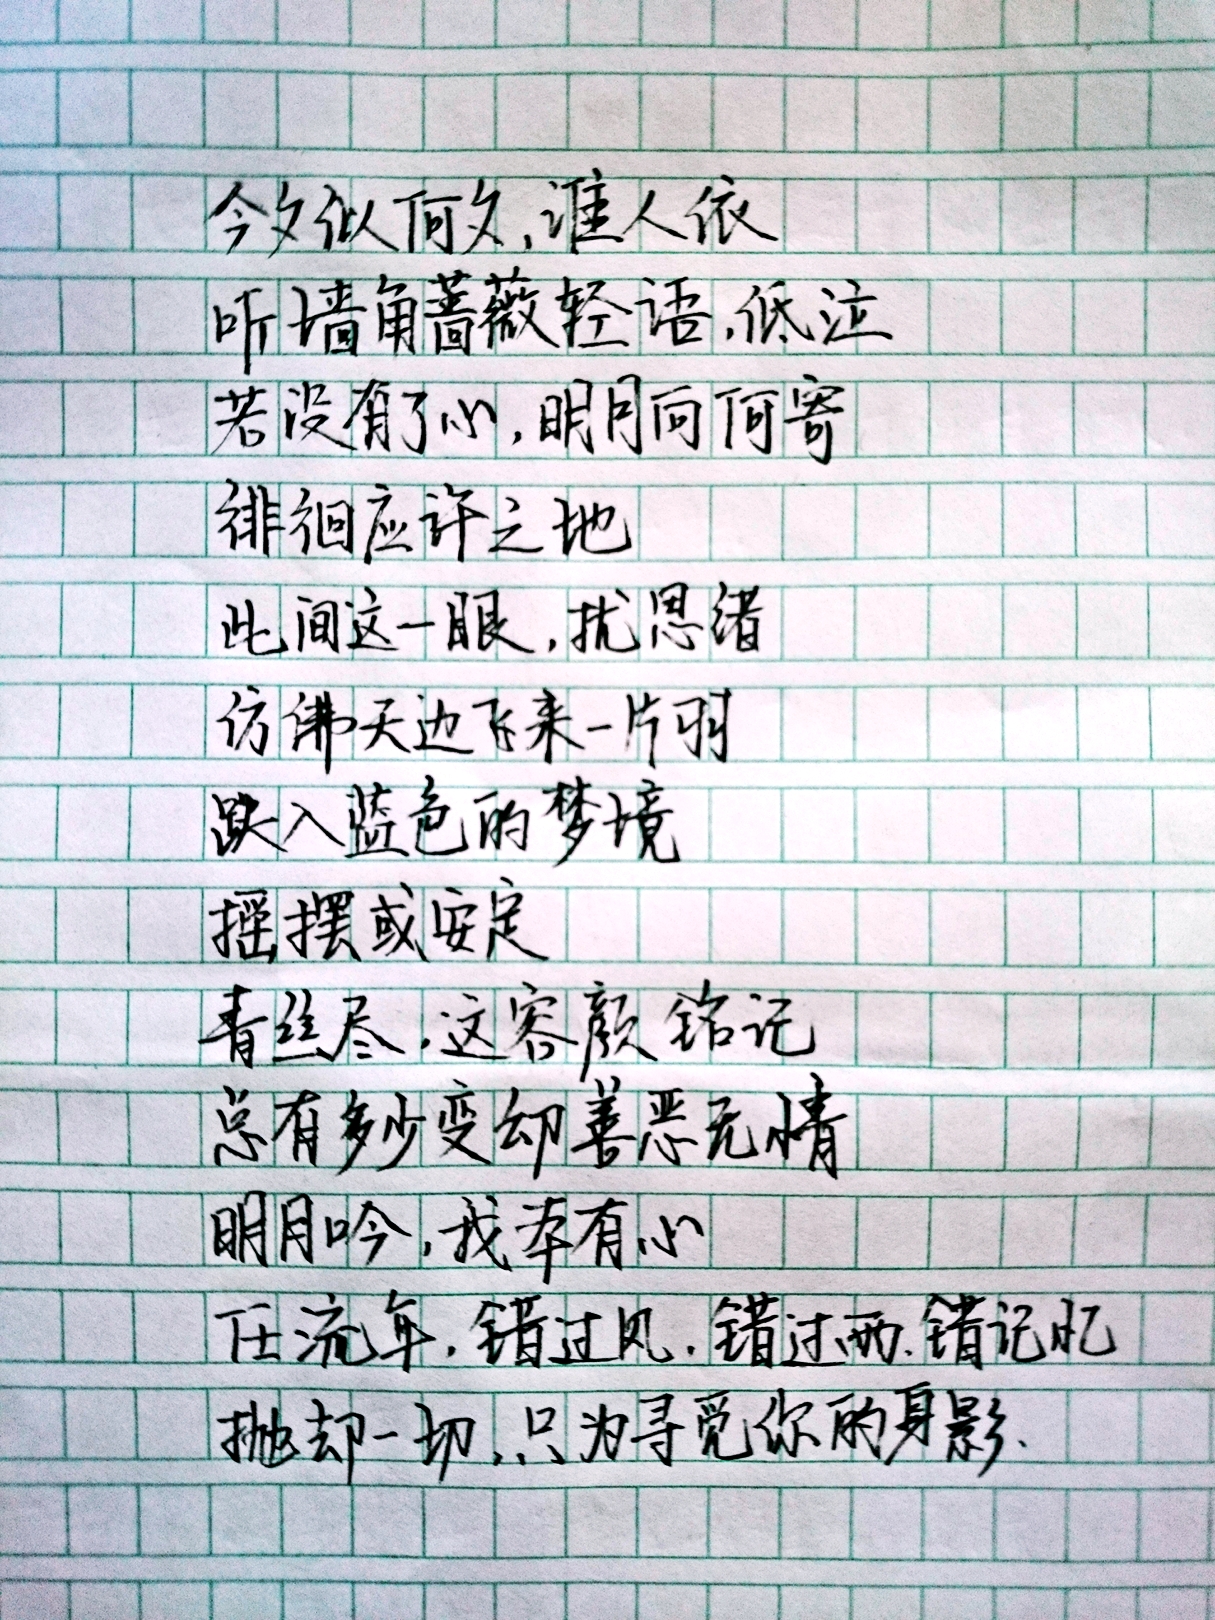 今夕似何夕,谁人依
听墙角蔷薇轻语,低泣
若没有了心,明月向何寄
徘徊应许之地
此间这一眼,扰思绪
仿佛天边飞来一片羽
跌入蓝色的梦境
摇摆或安定
青丝尽,这容颜铭记
总有多少变却善恶无情
明月吟,我本有心
任流年,错过风,错过雨、错记忆
抛却一切,只为寻觅你的身影、